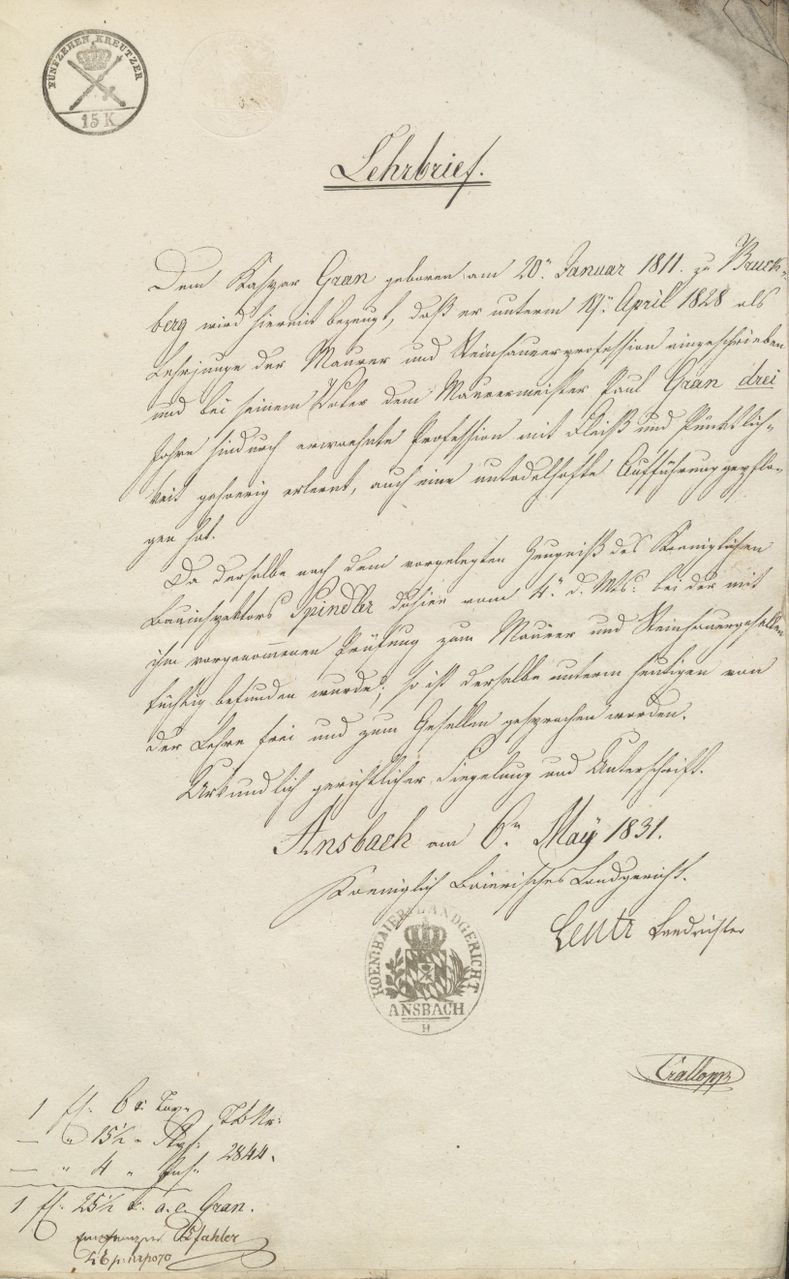 FÜNFZEHEN KREUTZER
15 K
Lehrbrief.
Dem Kaspar Gran geboren am 20n. Januar 1811. zu Bruck-
berg wird hiermit bezeugt, daß er unterm 17n. April 1828 als
Lehrjunge der Maurer und Steinhauerprofession eingeschrieben
und bei seinem Vater dem Maurermeister Paul Gran drei
Jahre hindurch erwaehnte Profession mit Fleiß und Pünktlich-
keit gehoerig erlernt, auch eine untadelhafte Aufführung gepflo-
gen hat.
Da derselbe nach dem vorgelegten Zeugniß des Koeniglichen
Bauinspektors Spindler dahier vom 4n. d. Mts. bei der mit
ihm vorgenommenen Prüfung zum Maurer und Steinhauergesellen
tüchtig befunden wurde; so ist derselbe unterm heutigen von
der Lehre frei und zum Gesellen gesprochen worden.
Urkundlich gerichtlicher Siegelung und Unterschrift.
Ansbach am 6n. May 1831.
Koeniglich Baierisches Landgericht.
KOEN. BAIER. LANDGERICHT
ANSBACH
H
Landrichter
1 fl. 6 x. Tax.
— " 15½ " Stpl.
— " 4 "
TbNr.
2844.
1 fl. 25½ x. a. e. Gran.